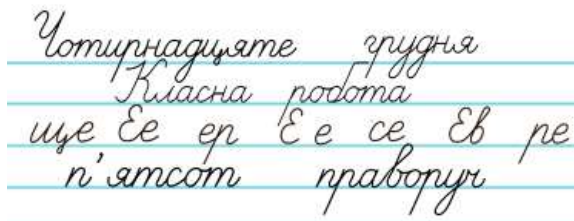 Чотирнадцяте грудня
Класна робота
ще Ее ер Е е се Ев ре
п'ятсот праворуч